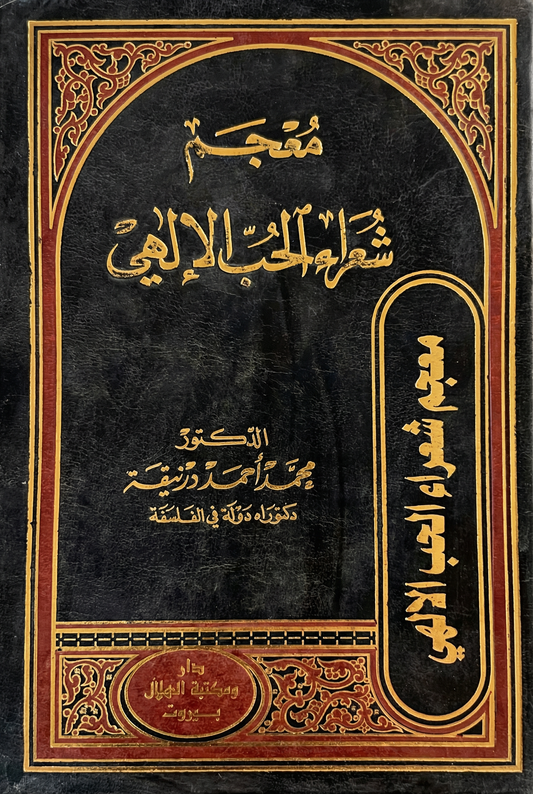 مُعْجَم
شُعَرَاء الحُبّ الإلهيْ
الدّكتور
محمَّد أحمَد دَرنيقَة
دكتوراه دَولة في الفلسَفة
معجم شعراء الحب الالهي
دار
ومكتبة الهلال
بيروت